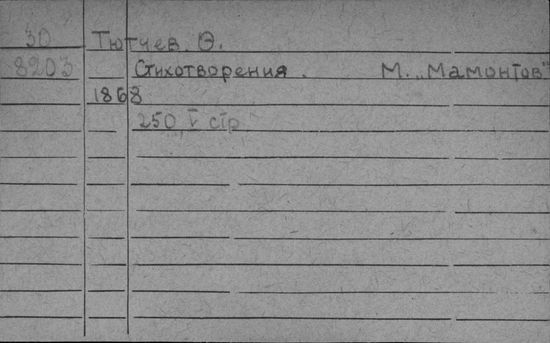 30 Тютчев. Ѳ.
8203 Стихотворения. М. „Мамонтов"
1868
250, V стр